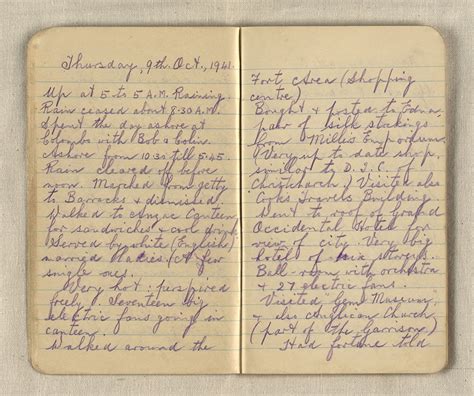 Thursday, 9th. Oct., 1941.
Up at 5 to 5 A.M. Raining.
Rain ceased about 8.30 A.M.
Spent the day ashore at
Colombo with Bob & Colin.
Ashore from 10.30 till 5.45.
Rain cleared off before
noon. Marched from jetty
to Barracks & dismissed.
Walked to Canteen
for sandwiches & cool drink.
Served by white (English)
married ladies (A few
single ones.
Very hot: perspired
freely. Seventeen big
electric fans going in
canteen.
Walked around the
Fort Area (Shopping
centre)
Bought & posted to Edna
pair of silk stockings
from Millers Emporium.
Very up to date shop,
similar to D.I.C. of
Christchurch. Visited also
Cooks Travels Building.
Went to roof of Grand
Occidental Hotel for
view of city. Very big
hotel of storeys.
Ball-room with orchestra
& 27 electric fans.
Visited Gem Museum,
& also Anglican Church
(part of the Garrison)
Had fortune told